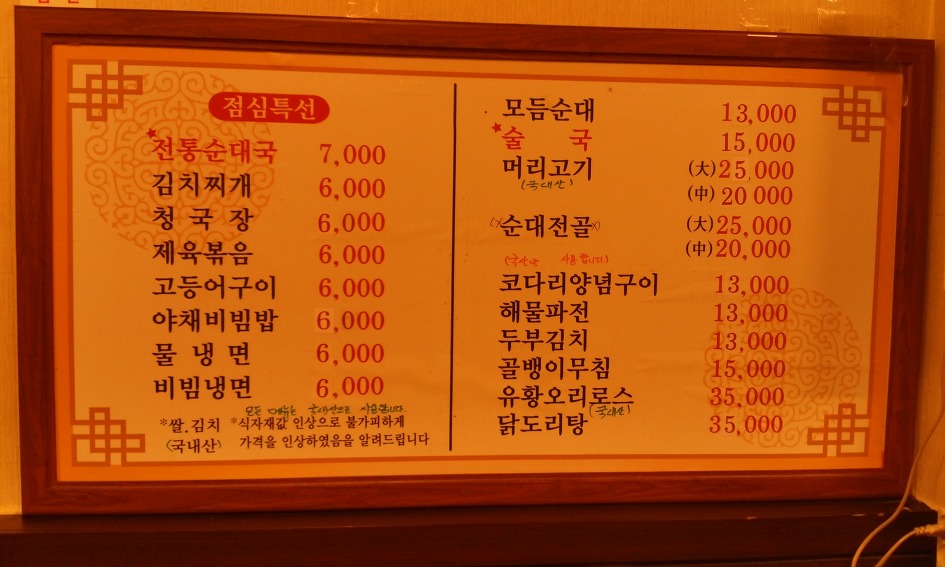 점심특선
전통순대국 7,000
김치찌개 6,000
청국장 6,000
제육볶음 6,000
고등어구이 6,000
야채비빔밥 6,000
물냉면 6,000
비빔냉면 6,000
모든 메뉴는 국내산으로 사용합니다.
*쌀.김치 *식자재값 인상으로 불가피하게
(국내산) 가격을 인상하였음을 알려드립니다
모듬순대 13,000
술국 15,000
머리고기 (大)25,000
(국내산) (中)20 000
순대전골 (大)25,000
(中)20,000
사용합니다)
코다리양념구이 13,000
해물파전 13,000
두부김치 13,000
골뱅이무침 15,000
유황오리로스 35,000
(국내산)
닭도리탕 35,000